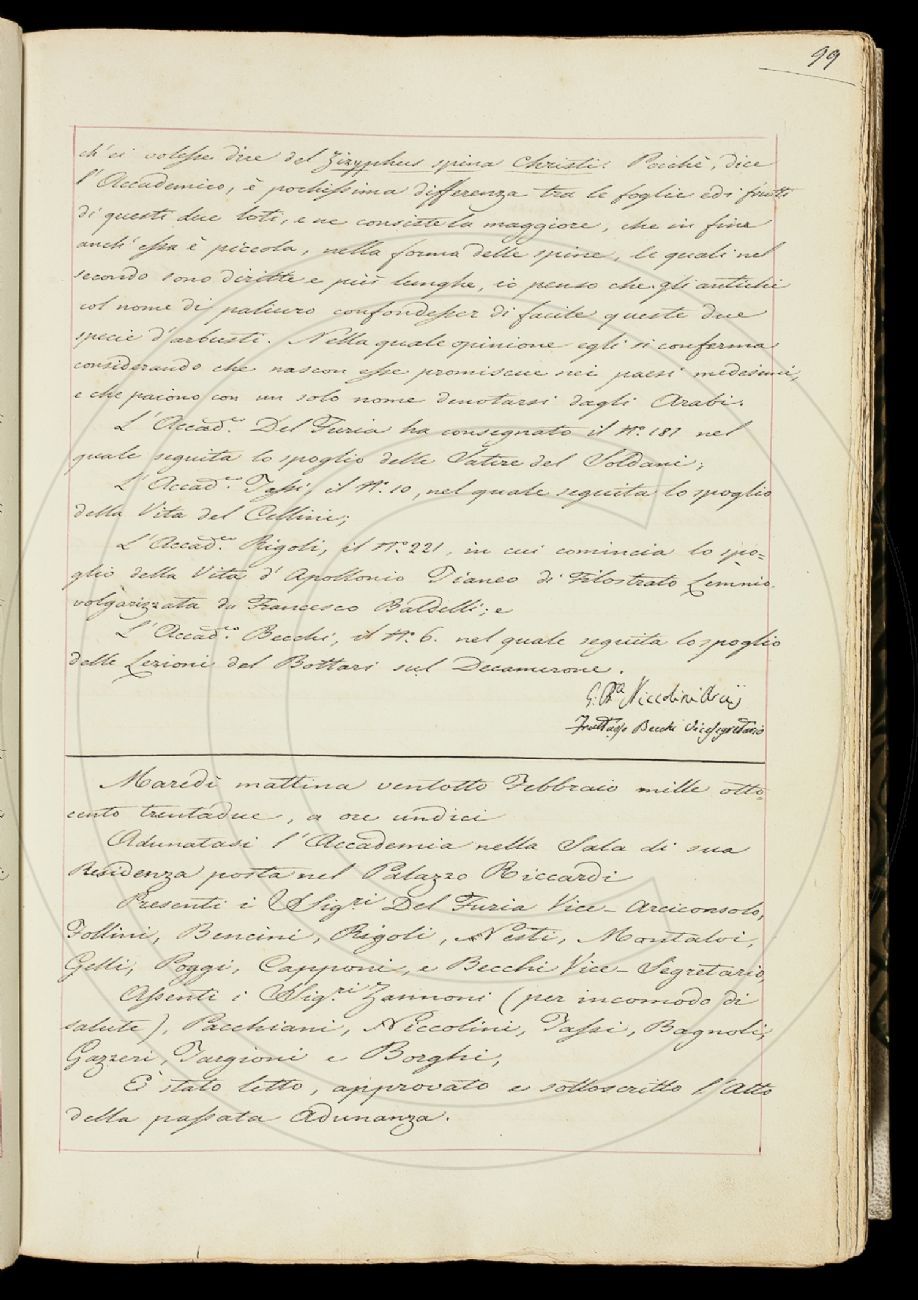 99
ch'ei volesse dire del Zizyphus spina Christi: Poichè, dice
l'Accademico, è pochissima differenza tra le foglie ed i frutti
di questi due loti, e ne consiste la maggiore, che in fine
anch'essa è piccola, nella forma delle spine, le quali nel
secondo sono diritte e più lunghe, io penso che gli antichi
col nome di paliuro confondesser di facile queste due
specie d'arbusti. Nella quale opinione egli si conferma
considerando che nascon esse promiscue nei paesi medesimi,
e che paiono con un solo nome denotarsi dagli Arabi.
L'Accad.co Del Furia ha consegnato il N.o 187 nel
quale seguita lo spoglio delle Satire del Soldani;
L'Accad.co Tassi, il N.o 10, nel quale seguita lo spoglio
della Vita del Cellini;
L'Accad.co Rigoli, il N.o 221, in cui comincia lo spo=
glio della Vita d'Apollonio Tianeo di Filostrato Lemnio
volgarizzata da Francesco Baldelli; e
L'Accad.co Becchi, il N.o 6. nel quale seguita lo spoglio
delle Lezioni del Bottari sul Decamerone.
G. Ba Niccolini
Fruttuoso Becchi Vicesegretario
Maredì mattina ventotto Febbraio mille otto=
cento trentadue, a ore undici
Adunatasi l'Accademia nella Sala di sua
Residenza posta nel Palazzo Riccardi
Presenti i SSig.ri Del Furia Vice-Arciconsolo,
Follini, Bencini, Rigoli, Nesti, Montalvi,
Gelli, Poggi, Capponi, e Becchi Vice-Segretario,
Assenti i SSig.ri Zannoni (per incomodo di
salute), Pacchiani, Niccolini, Tassi, Bagnoli,
Gazzeri, Targioni e Borghi,
È stato letto, approvato e sottoscritto l'Atto
della passata Adunanza.